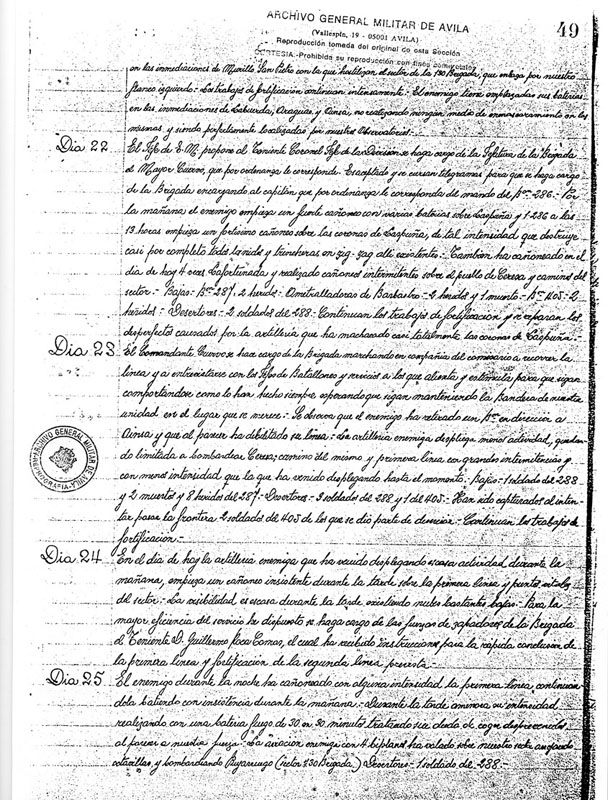 ARCHIVO GENERAL MILITAR DE AVILA
49
(Vallespín, 19 - 05001 AVILA)
Reproducción tomada del original de esta Sección
CORTESIA.-Prohibida su reproducción con fines comerciales
en las inmediaciones de Murillo San Pietro con la que hostilizan el sector de la 130 Brigada, que enlaza por nuestro
flanco izquierdo.- Los trabajos de fortificación continuan intensamente.- El enemigo tiene emplazadas sus baterias
en las inmediaciones de Labuerda, Araguas, y Ainsa, no realizando ningún medio de enmascaramiento en las
mismas y siendo perfectamente localizadas por nuestros Observatorios.-
Dia 22 El Jefe de E.M. propone al Teniente Coronel Jefe de la Division se haga cargo de la Jefatura de la Brigada
el Mayor Cuervo, que por ordenanza le corresponde. Es aceptado y se cursan telegramas para que se haga cargo
de la Brigada encargando al capitán que por ordenanza le corresponda del mando del Bon 286.- Por
la mañana el enemigo empieza un fuerte cañoneo con varias baterias sobre Laspuña y 1-286 a las
13 horas empieza un fortisimo cañoneo sobre las coronas de Laspuña, de tal intensidad que destruye
casi por completo todos los nidos y trincheras en zig-zag alli existentes.- Tambien ha cañoneado en el
dia de hoy 4 veces Lafortunada y realizado cañoneos intermitentes sobre el pueblo de Ceresa y caminos del
sector.- Bajas.- Bon 287, 2 heridos.- Ametralladoras de Barbastro - 2 heridos y 1 muerto.- Bon 403 - 2
heridos.- Desertores.- 2 soldados del 288.- Continuan los trabajos de fortificación y se reparan los
desperfectos causados por la artilleria que ha machacado casi totalmente las coronas de Laspuña.-
Dia 23 El Comandante Cuervo se hace cargo de la Brigada marchando en compañia del comisario a recorrer la
linea y a entrevistarse con los Jefes de Batallones y servicios a los que alienta y estimula para que sigan
comportándose como lo han hecho siempre esperando que sigan manteniendo la Bandera de nuestra
unidad en el lugar que se merece.- Se observa que el enemigo ha retirado un Bon en dirección a
Ainsa y que al parecer ha debilitado su linea.- La artilleria enemiga despliega menos actividad, quedan-
do limitada a bombardear Ceresa; camino del mismo y primera linea con grandes intermitencias y
con menos intensidad que la que ha venido desplegando hasta el momento.- Bajas.- 1 soldado del 288
y 2 muertos y 8 heridos del 287.- Desertores.- 3 soldados del 288 y 1 del 403.- Han sido capturados al inten-
tar pasar la frontera 2 soldados del 403 de los que se dio parte de desertar.- Continuan los trabajos de
fortificación.-
Dia 24 En el dia de hoy la artilleria enemiga que ha venido desplegando escasa actividad durante la
mañana, empieza un cañoneo insistente durante la tarde sobre la primera linea y puntos vitales
del sector.- La visibilidad es escasa durante la tarde existiendo nubes bastantes bajas.- Para la
mayor eficiencia del servicio he dispuesto se haga cargo de las fuerzas de zapadores de la Brigada
el Teniente D. Guillermo Coca Comas, el cual ha recibido instrucciones para la rapida conclusion de
la primera linea y fortificación de la segunda linea prevista.-
Dia 25 El enemigo durante la noche ha cañoneado con alguna intensidad la primera linea continuan-
dola batiendo con insistencia durante la mañana.- Durante la tarde aminora su intensidad,
realizando con una bateria fuego de 30 en 30 minutos tratando sin duda de coger desprevenidas
al parecer a nuestra fuerza.- La aviacion enemiga con 4 biplanos ha volado sobre nuestro sector arrojando
octavillas, y bombardeando Puyarruego (sector 130 Brigada.) Desertores.- 1 soldado del 288.-
ARCHIVO GENERAL MILITAR DE AVILA